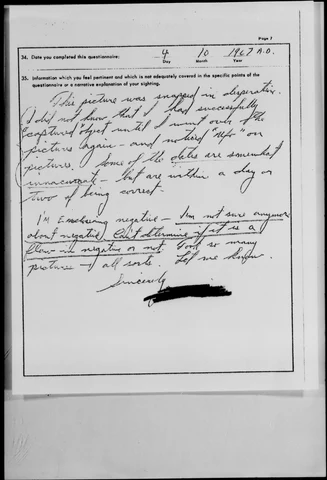 Page 7
34. Date you completed this questionnaire: 4 10 1967 A.D.
Day Month Year
35. Information which you feel pertinent and which is not adequately covered in the specific points of the
questionnaire or a narrative explanation of your sighting.
This picture was snapped in desperation.
I did not know that I had successfully
"captured" object until I went over the
pictures again - and noticed "UFO" on
picture. Some of the dates are somewhat
innaccurate - but are within a day or
two of being correct.
I'm Enclosing negative - I'm not sure anymore
about negative, Can't determine if it is a
flaw in negative or not. Took so many
pictures - all sorts. Let me know.
Sincerely